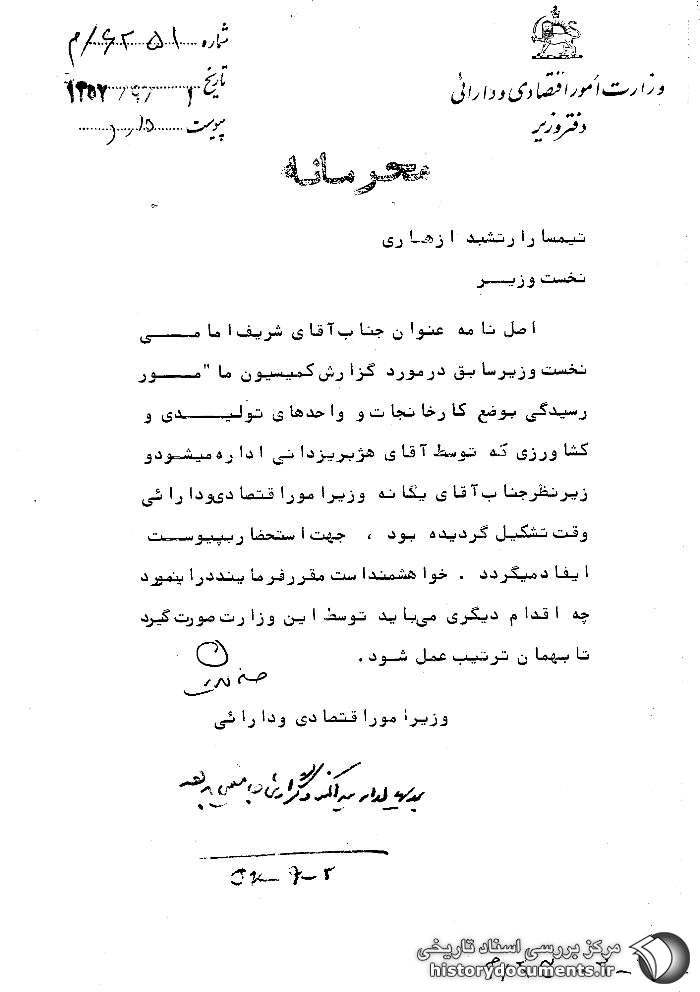 وزارت امور اقتصادی و دارائی
دفتر وزیر
شماره ۶۲۵۱/م
تاریخ ۱۳۵۷/۹/۱
پیوست دارد
محرمانه
تیمسار ارتشبد ازهاری
نخست وزیر
اصل نامه عنوان جناب آقای شریف امامی
نخست وزیر سابق در مورد گزارش کمیسیون ما "مور
رسیدگی بوضع کارخانجات و واحدهای تولیدی و
کشاورزی که توسط آقای هژبر یزدانی اداره میشود و
زیر نظر جناب آقای یگانه وزیر امور اقتصادی و دارائی
وقت تشکیل گردیده بود ، جهت استحضار بپیوست
ایفاد میگردد . خواهشمند است مقرر فرمایند در اینمورد
چه اقدام دیگری می‌باید توسط این وزارت صورت گیرد
تا بهمان ترتیب عمل شود .
وزیر امور اقتصادی و دارائی
۵۷-۹-۲
مرکز بررسی اسناد تاریخی
historydocuments.ir